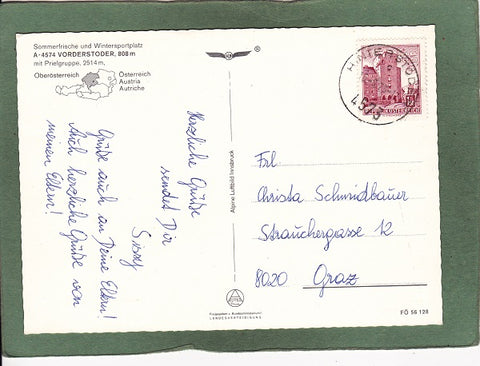 Sommerfrische und Wintersportplatz
A-4574 VORDERSTODER, 808 m
mit Prielgruppe, 2514 m,
Oberösterreich
Österreich
Austria
Autriche
®
Herzliche Grüße
sendet Dir
Sissy
Grüße auch an Deine Eltern!
Auch herzliche Grüße von
meinen Eltern!
Alpine Luftbild Innsbruck
HINTERSTODER
4573
REPUBLIK ÖSTERREICH
Frl.
Christa Schmidbauer
Strauchergasse 12
8020 Graz
Freigegeben v. Bundesministerium f.
LANDESVERTEIDIGUNG
FÖ 56 128